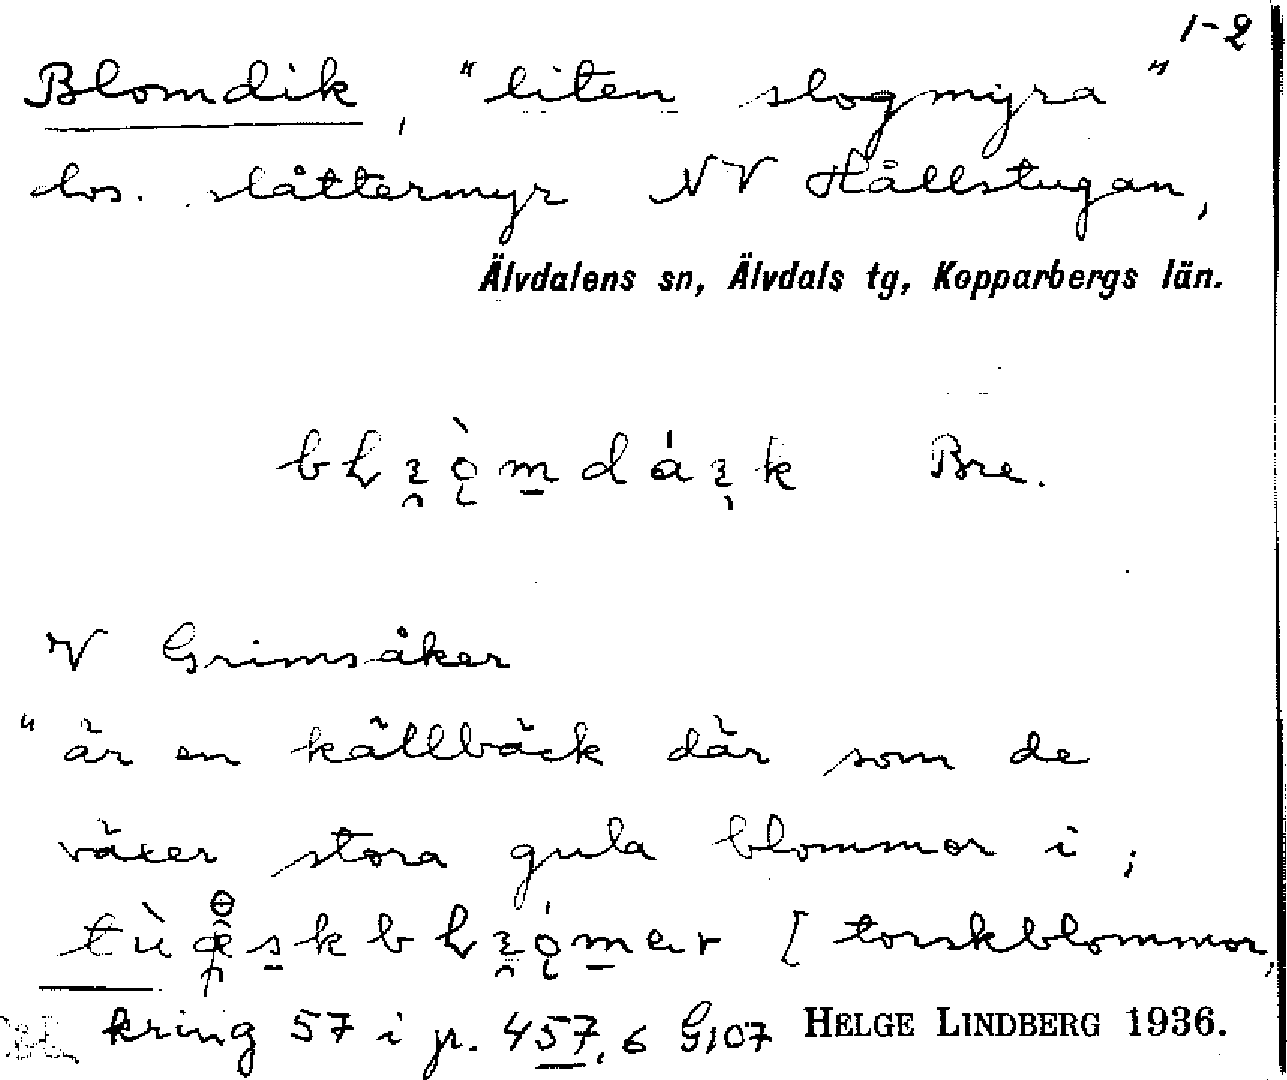 1-2
Blomdik, "liten slogmyra"
hos. slåttermyr NV Hållstugan,
Älvdalens sn, Älvdals tg, Kopparbergs län.
Bre.
V Grimsåker
"är en källbäck där som de
växer stora gula blommor i,
[torskblommor,
kring 57 i p. 457,6 G,107 HELGE LINDBERG 1936.